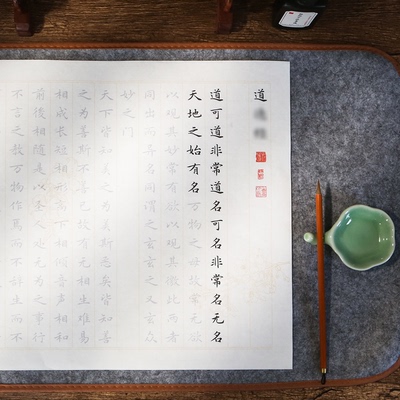 道
道可道非常道名可名非常名无名
天地之始有名万物之母故常无欲
以观其妙常有欲以观其徼此两者
同出而异名同谓之玄玄之又玄众
妙之门
天下皆知美之为美斯恶矣皆知善
之为善斯不善矣故有无相生难易
相成长短相形高下相倾音声相和
前後相随是以圣人处无为之事行
不言之教万物作焉而不辞生而不